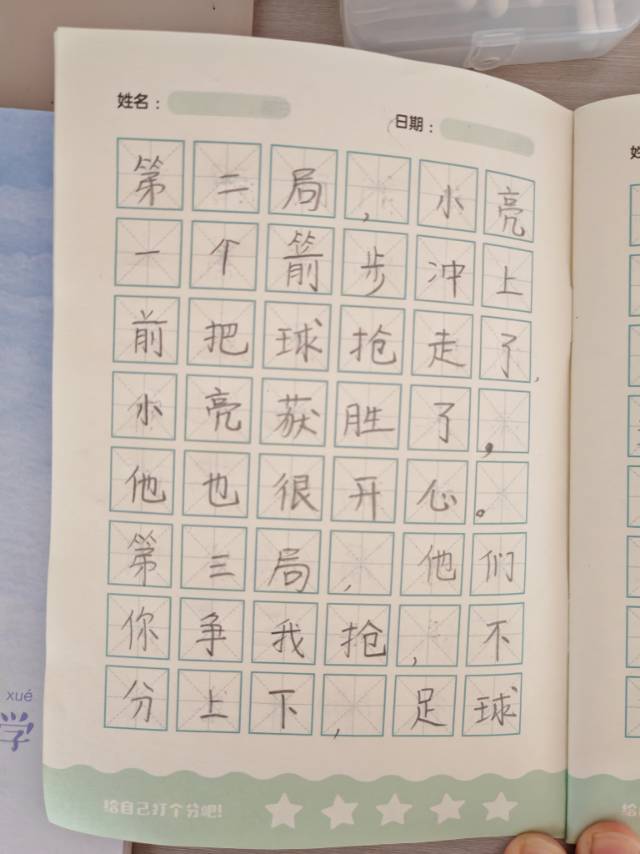 姓名：
日期：
第二局，小亮
一个箭步冲上
前把球抢走了，
小亮获胜了，
他也很开心。
第三局，他们
你争我抢，不
分上下，足球
给自己打个分吧！
xué
学